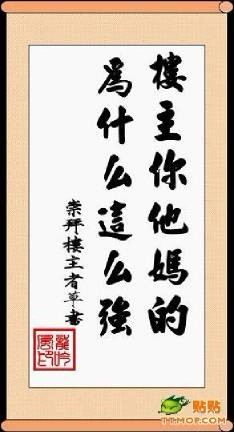 樓主你他媽的
為什么這么強
崇拜樓主者草書
貼貼
TT.MOP.COM